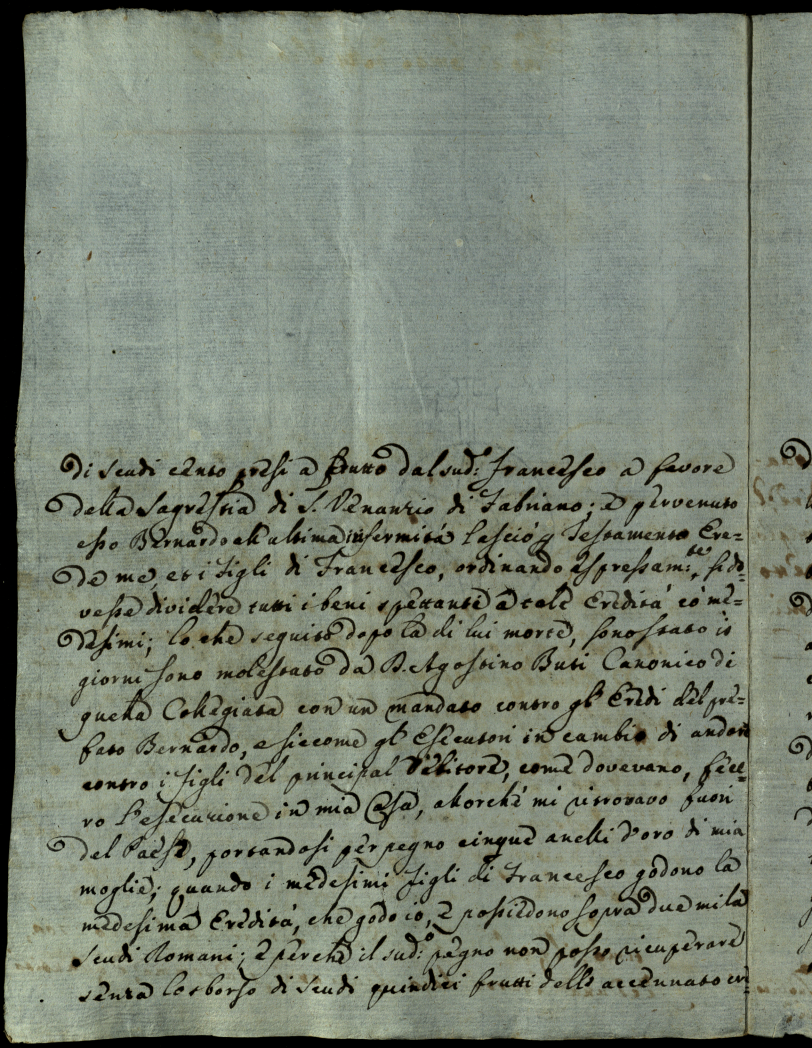 di scudi cento presi a frutto dal sud.º Francesco a favore
della Sagrestia di S. Venanzio di Fabriano; e pervenuto
esso Bernardo all'ultima infermità lasciò p Testamento Ere=
de me, et i Figli di Francesco, ordinando espressam:te, si do=
vesse dividere tutti i beni spettante a tale Eredità có me=
desimi; lo che seguito dopo la di lui morte, sono stato is
giorni sono molestato da D. Agostino Buti Canonico di
questa Collegiata con un mandato contro gl'Eredi del pre=
fato Bernardo, e siccome gl'Esecutori in cambio di andare
contro i figli del principal Debitore, come dovevano, fece=
ro l'esecuzione in mia Casa, allorchè mi ritrovavo fuori
del Paese, portandosi per pegno cinque anelli d'oro di mia
moglie; quando i medesimi figli di Francesco godono la
medesima Eredità, che godo io, e possiedono sopra due mila
scudi Romani; e perchè il sud.º pegno non posso ricuperare
senza lo sborso di scudi quindici frutti dello accennato